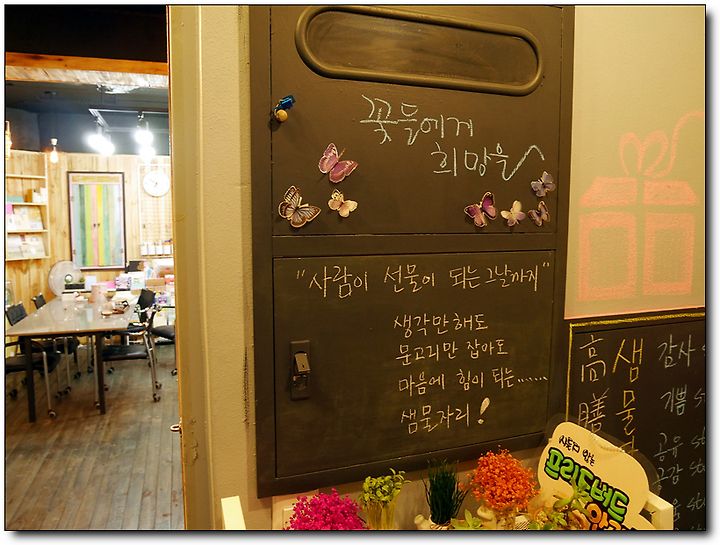 꽃들에게
희망을
"사람이 선물이 되는 그날까지"
생각만해도
문고리만 잡아도
마음에 힘이 되는.......
샘물자리!
高 샘 감사
膳 물 기쁨
공유
공감
프리드버드